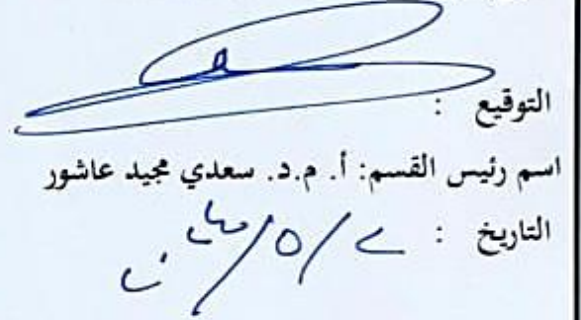 التوقيع :
اسم رئيس القسم: أ. م.د. سعدي مجيد عاشور
التاريخ : ٥/